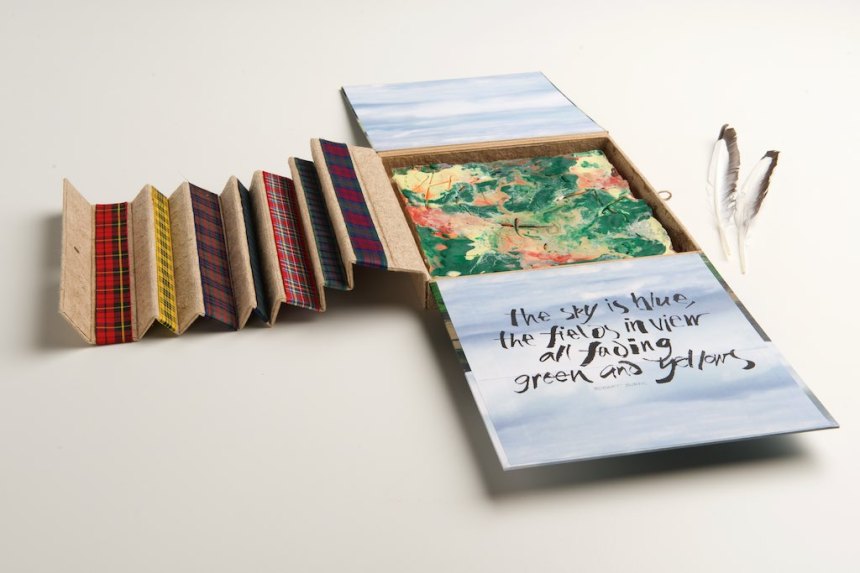 the sky is blue,
the fields in view
all fading
green and yellow
ROBERT BURNS